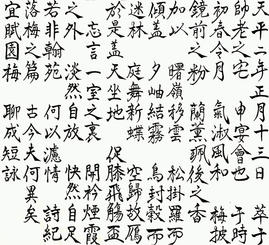 天平二年正月十三日 萃于
帥老之宅 申宴會也 于時
初春令月 氣淑風和 梅披
鏡前之粉 蘭薫珮後之香
加以 曙嶺移雲 松掛羅而
傾盖 夕岫結霧 鳥封縠而
迷林 庭舞新蝶 空歸故鴈
於是盖天坐地 促膝飛觴
忘言一室之裏 開衿煙霞
之外 淡然自放 快然自足
若非翰苑 何以攄情 詩紀
落梅之篇 古今夫何異矣
宜賦園梅 聊成短詠